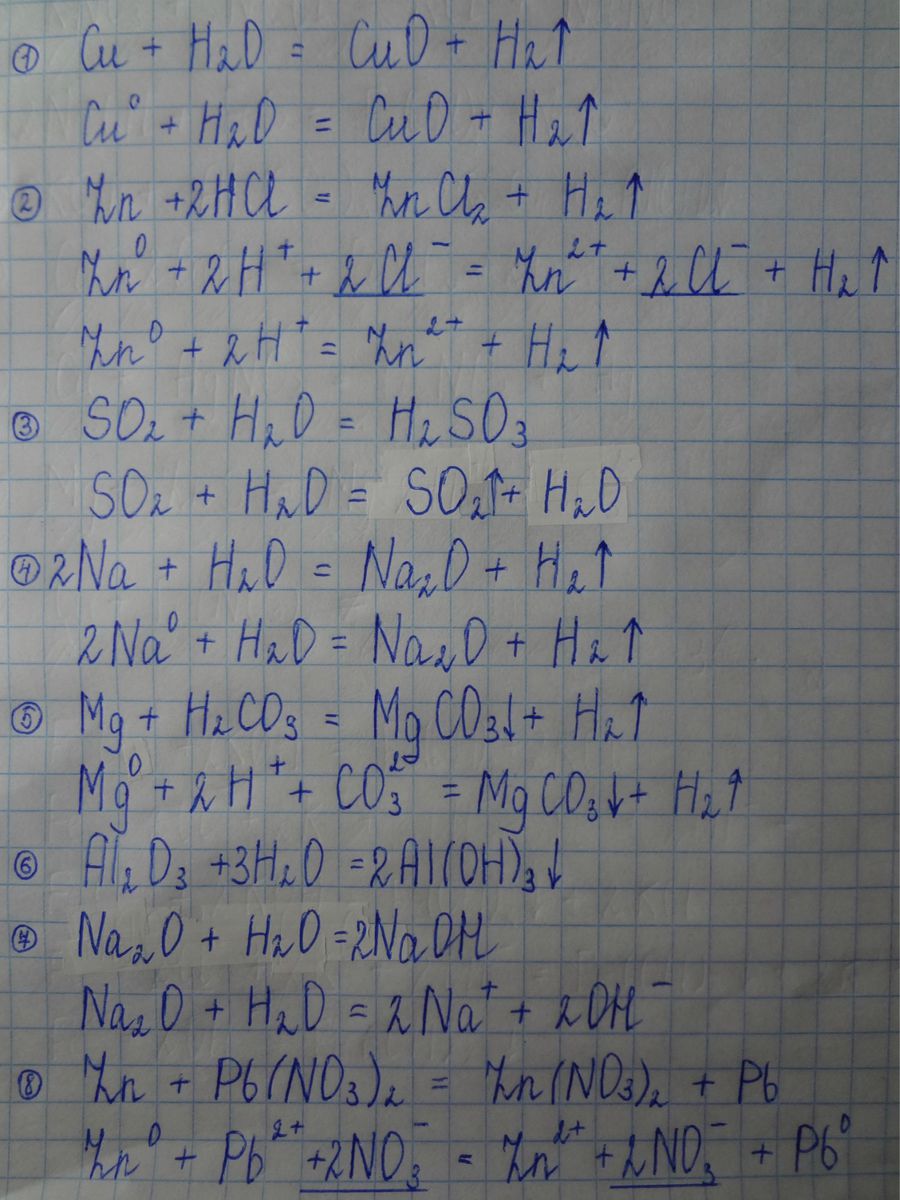 ① Cu + H₂O = CuO + H₂↑
Cu⁰ + H₂O = CuO + H₂↑
② Zn +2HCl = ZnCl₂ + H₂↑
Zn⁰ + 2H⁺ + 2Cl⁻ = Zn²⁺ + 2Cl⁻ + H₂↑
Zn⁰ + 2H⁺ = Zn²⁺ + H₂↑
③ SO₂ + H₂O = H₂SO₃
SO₂ + H₂O = SO₂↑+ H₂O
④ 2Na + H₂O = Na₂O + H₂↑
2Na⁰ + H₂O = Na₂O + H₂↑
⑤ Mg + H₂CO₃ = MgCO₃↓+ H₂↑
Mg⁰ + 2H⁺ + CO₃²⁻ = MgCO₃↓+ H₂↑
⑥ Al₂O₃ +3H₂O =2Al(OH)₃↓
⑦ Na₂O + H₂O =2NaOH
Na₂O + H₂O = 2Na⁺ + 2OH⁻
⑧ Zn + Pb(NO₃)₂ = Zn(NO₃)₂ + Pb
Zn⁰ + Pb²⁺ +2NO₃⁻ = Zn²⁺ +2NO₃⁻ + Pb⁰